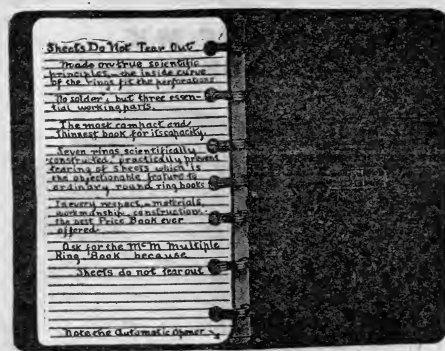 Sheets Do Not Tear Out
Made on true scientific
principles,- the inside curve
of the rings fit the perforations
No solder, but three essen-
tial working parts.
The most compact and
thinnest book for its capacity.
Seven rings scientifically
constructed, practically prevent
tearing of sheets which is
the objectionable feature to
ordinary round ring books
In every respect,- materials,
workmanship, construction-
the best Price Book ever
offered.
Ask for the McM Multiple
Ring Book because
Sheets do not tear out
Note the Automatic Opener